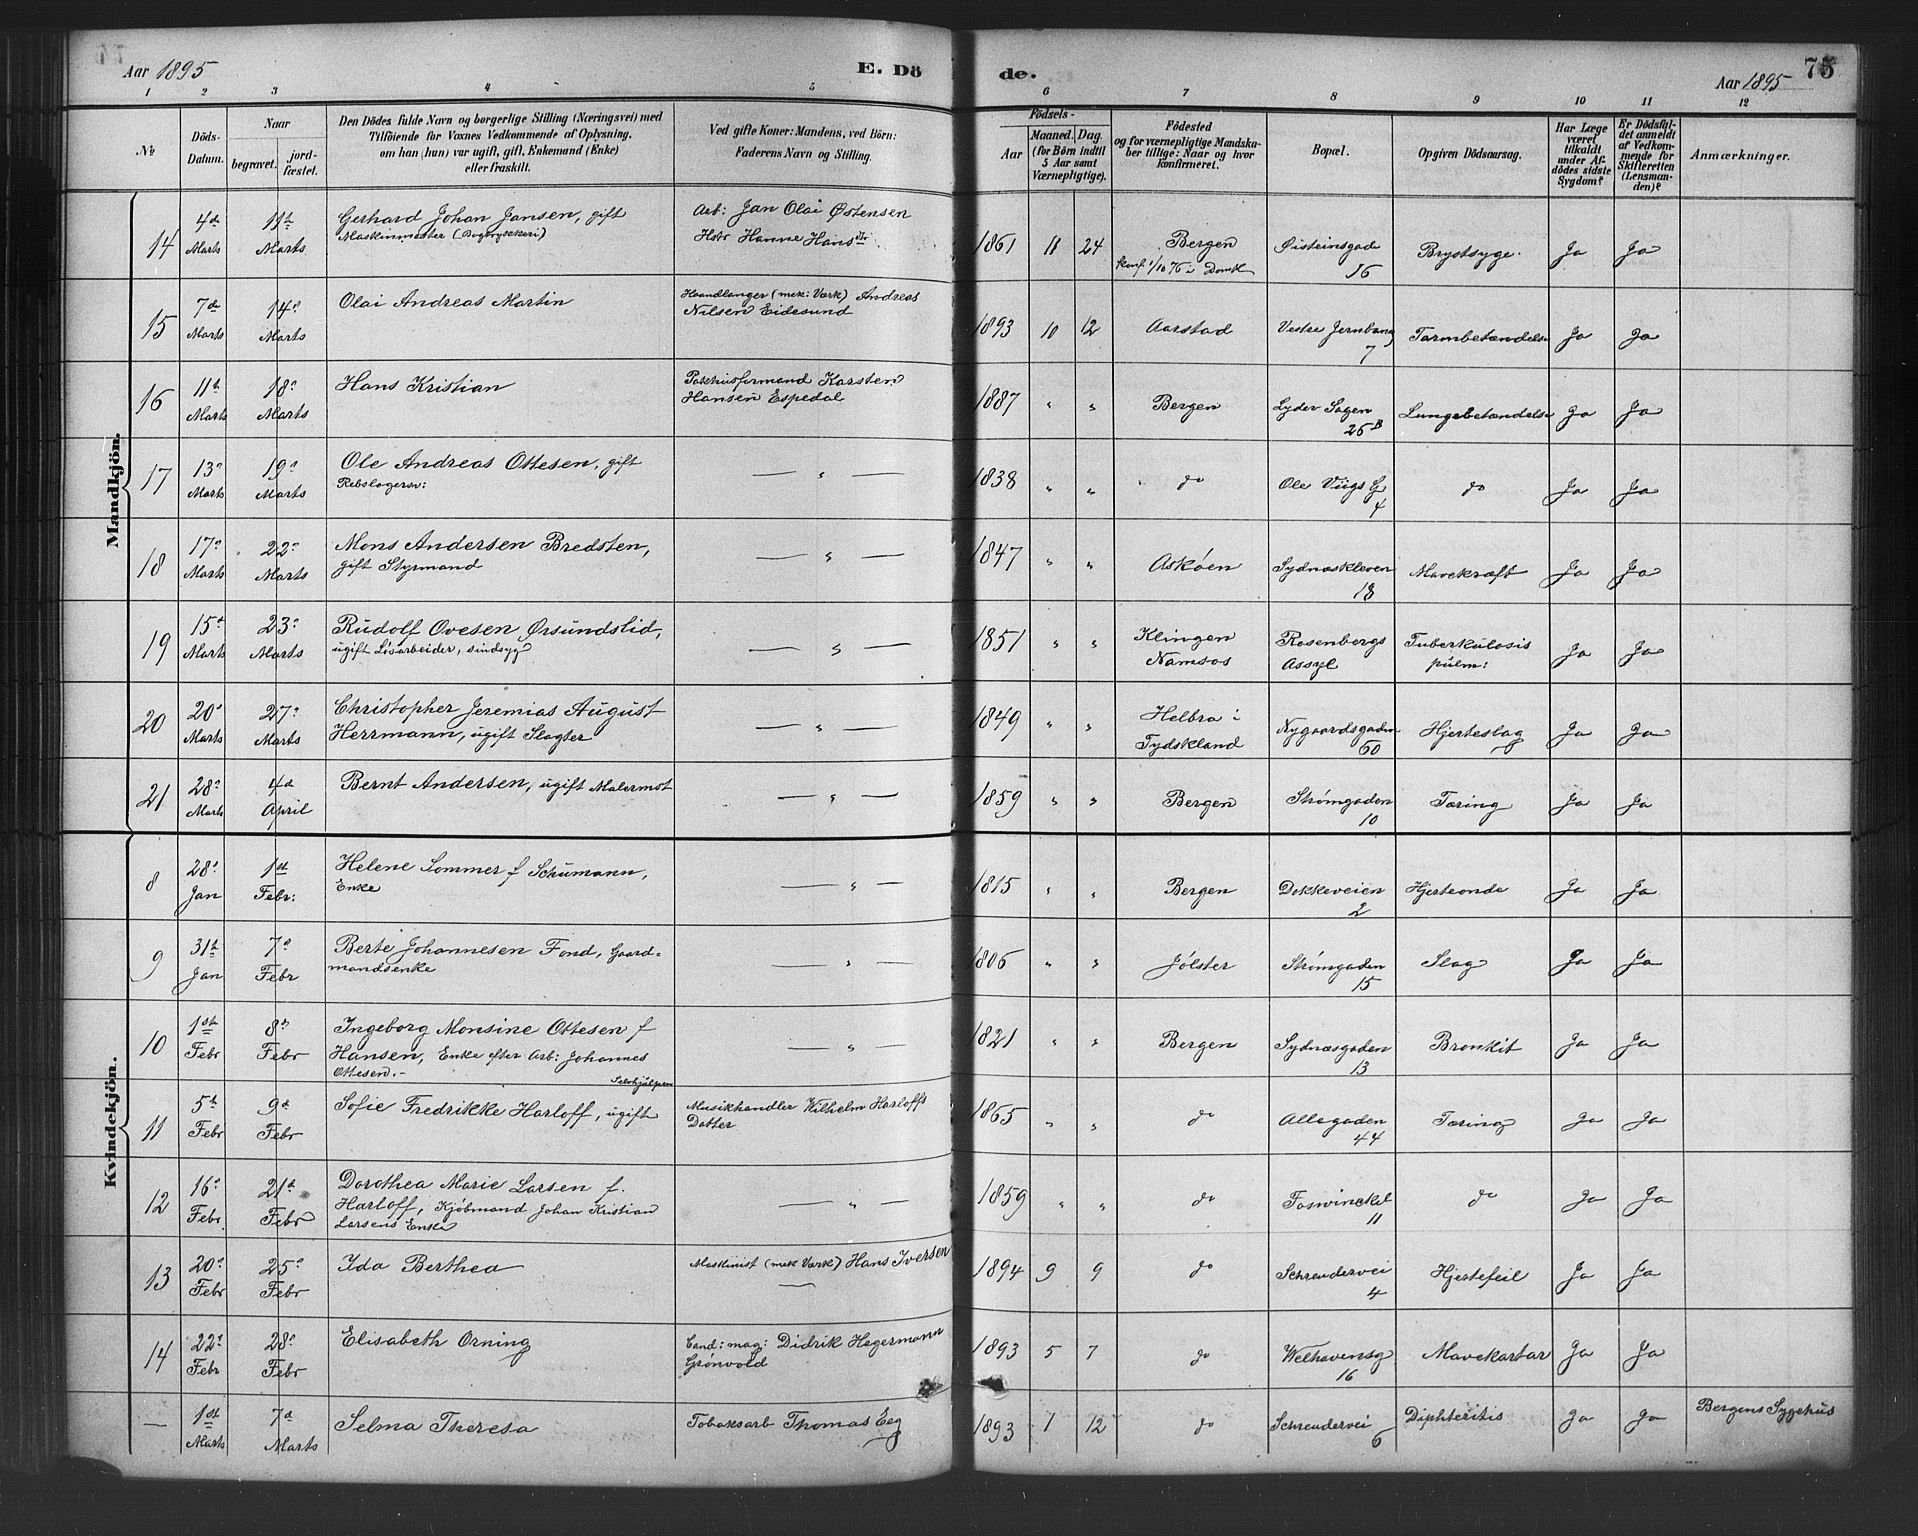 Aar 1895
E. Dö
de.
75
Aar 1895
1 2 3 4 5 6 7 8 9 10 11 12
No
Döds-Datum.
Naar
begravet.
jord-fæstet.
Den Dödes fulde Navn og borgerlige Stilling (Næringsvei) med
Tilföiende for Voxnes Vedkommende af Oplysning,
om han (hun) var ugift, gift, Enkemand (Enke)
eller fraskilt.
Ved gifte Koner: Mandens, ved Börn:
Faderens Navn og Stilling.
Födsels-
Aar
Maaned. Dag.
(for Börn indtil
5 Aar samt
Værnepligtige).
Födested
og for værnepligtige Mandska-
ber tillige: Naar og hvor
konfirmeret.
Bopæl.
Opgiven Dödsaarsag.
Har Læge
været
tilkaldt
under Af-
dödes sidste
Sygdom?
Er Dödsfal-
det anmeldt
af Vedkom-
mende for
Skifteretten
(Lensman-
den)?
Anmærkninger.
Mandkjön.
14 4de Marts 11te Marts Gerhard Johan Jansen, gift Maskinmester (Bogtrykkeri) Arb: Jan Olai Østensen Hstr Hanne Hansdtr 1861 11 24 Bergen konf 1/10 76 i Domk Øisteinsgade 16 Brystsyge. Ja Ja
15 7de Marts 14de Marts Olai Andreas Martin Haandlanger (mek: Værk) Andreas Nilsen Eidesund 1893 10 12 Aarstad Vestre Jernbaneg 7 Tarmbetændelse Ja Ja
16 11te Marts 18de Marts Hans Kristian Pakhusformand Karsten Hansen Espedal 1887 " " Bergen Lyder Sagen 26B Lungebetændelse Ja Ja
17 13de Marts 19de Marts Ole Andreas Ottesen, gift Rebslagersv: — " — 1838 " " do Ole Viigs G 4 do Ja Ja
18 17de Marts 22de Marts Mons Andersen Bredsten, gift Styrmand — " — 1847 " " Askøen Sydnæskleven 18 Mavekræft Ja Ja
19 15de Marts 23de Marts Rudolf Ovesen Ørsundslid, ugift Løsarbeider, sindsyg — " — 1851 " " Klingen Namsos Rosenbergs Assyl Tuberkulosis pulm: Ja Ja
20 20de Marts 27de Marts Christopher Jeremias August Herrmann, ugift Slagter — " — 1849 " " Helbra i Tydskland Nygaardsgaden 60 Hjerteslag Ja Ja
21 28de Marts 4de April Bernt Andersen, ugift Malermst — " — 1859 " " Bergen Strømgaden 10 Tæring Ja Ja
Kvindekjön.
8 28de Jan 1st Febr: Helene Sommer f Schumann, Enke — " — 1815 " " Bergen Dokkeveien 2 Hjerteonde Ja Ja
9 31te Jan 7de Febr Berte Johannesen Fond, Gaard= mandsenke — " — 1806 " " Jølster Strømgaden 15 Slag Ja Ja
10 1st Febr 8de Febr Ingeborg Monsine Ottesen f Hansen, Enke efter Arb: Johannes Ottesen.- — " — 1821 " " Bergen Sydnæsgaden 13 Bronkit Ja Ja
11 5te Febr 9de Febr Sofie Fredrikke Harloff, ugift Selvhjulpen Musikhandler Wilhelm Harloffs Datter 1865 " " do Allegaden 44 Tæring Ja Ja
12 16de Febr 21de Febr Dorothea Marie Larsen f. Harloff, Kjøbmand Johan Kristian Larsens Enke — " — 1859 " " do Foswinckel 11 do Ja Ja
13 20de Febr 25de Febr Ida Berthea Maskinist (mek Værk) Hans Iversen — 1894 9 9 do Schreudervei 4 Hjertefeil Ja Ja
14 22de Febr 28de Febr Elisabeth Orning Cand: mag: Didrik Hegermann Grønvold 1893 5 7 do Welhavensg 16 Mavekatar Ja Ja
— 1st Marts 7de Marts Selma Theresa Tobaksarb Thomas Eeg 1893 1 12 do Schreudervei 6 Diphteritis Ja Ja Bergens Sygehus